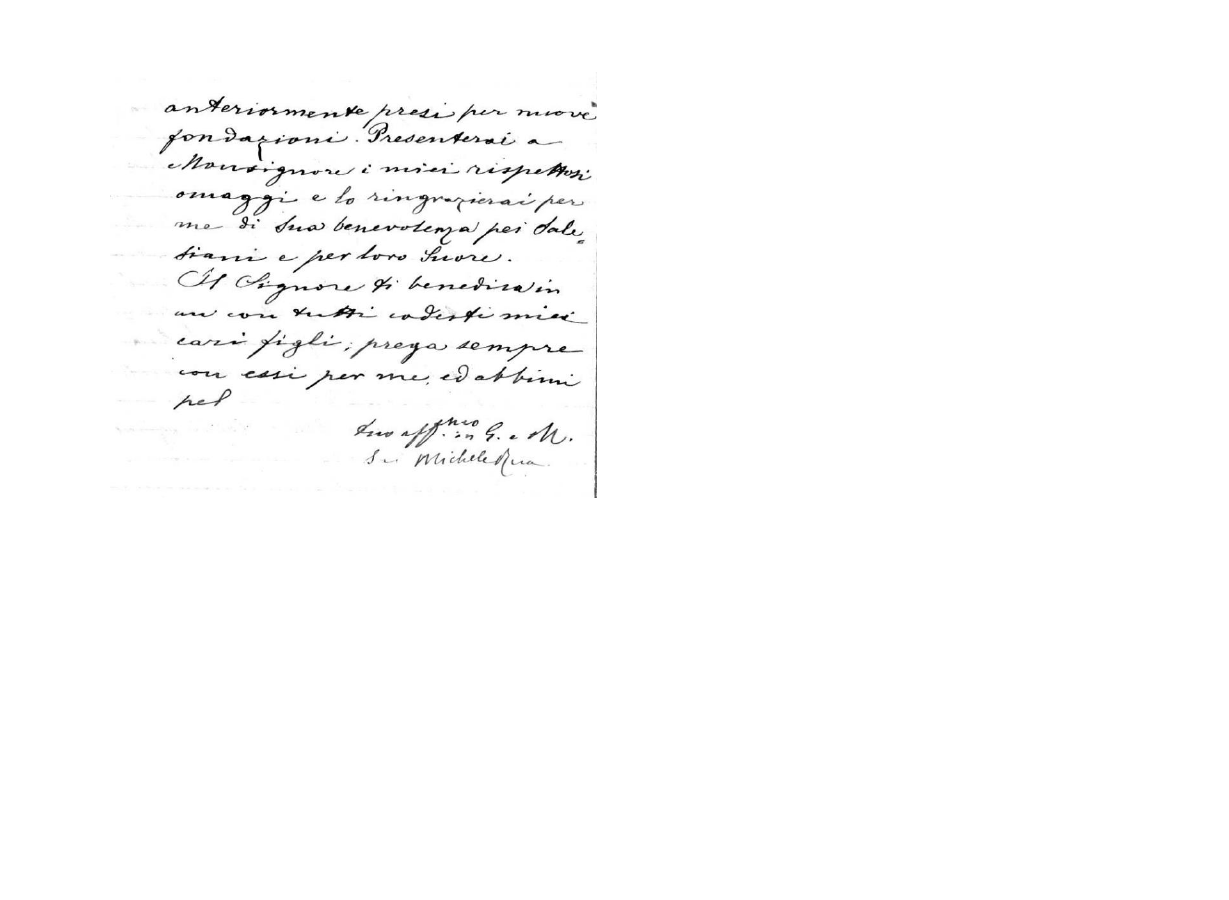 anteriormente presi per nuove
fondazioni. Presenterai a
Monsignore i miei rispettosi
omaggi e lo ringrazierai per
me di Sua benevolenza pei Sale=
siani e per loro Suore.
Il Signore ti benedica in
un con tutti codesti miei
cari figli; prega sempre
con essi per me, ed abbimi
pel
tuo aff.mo in G. e M.
Sac. Michele Rua